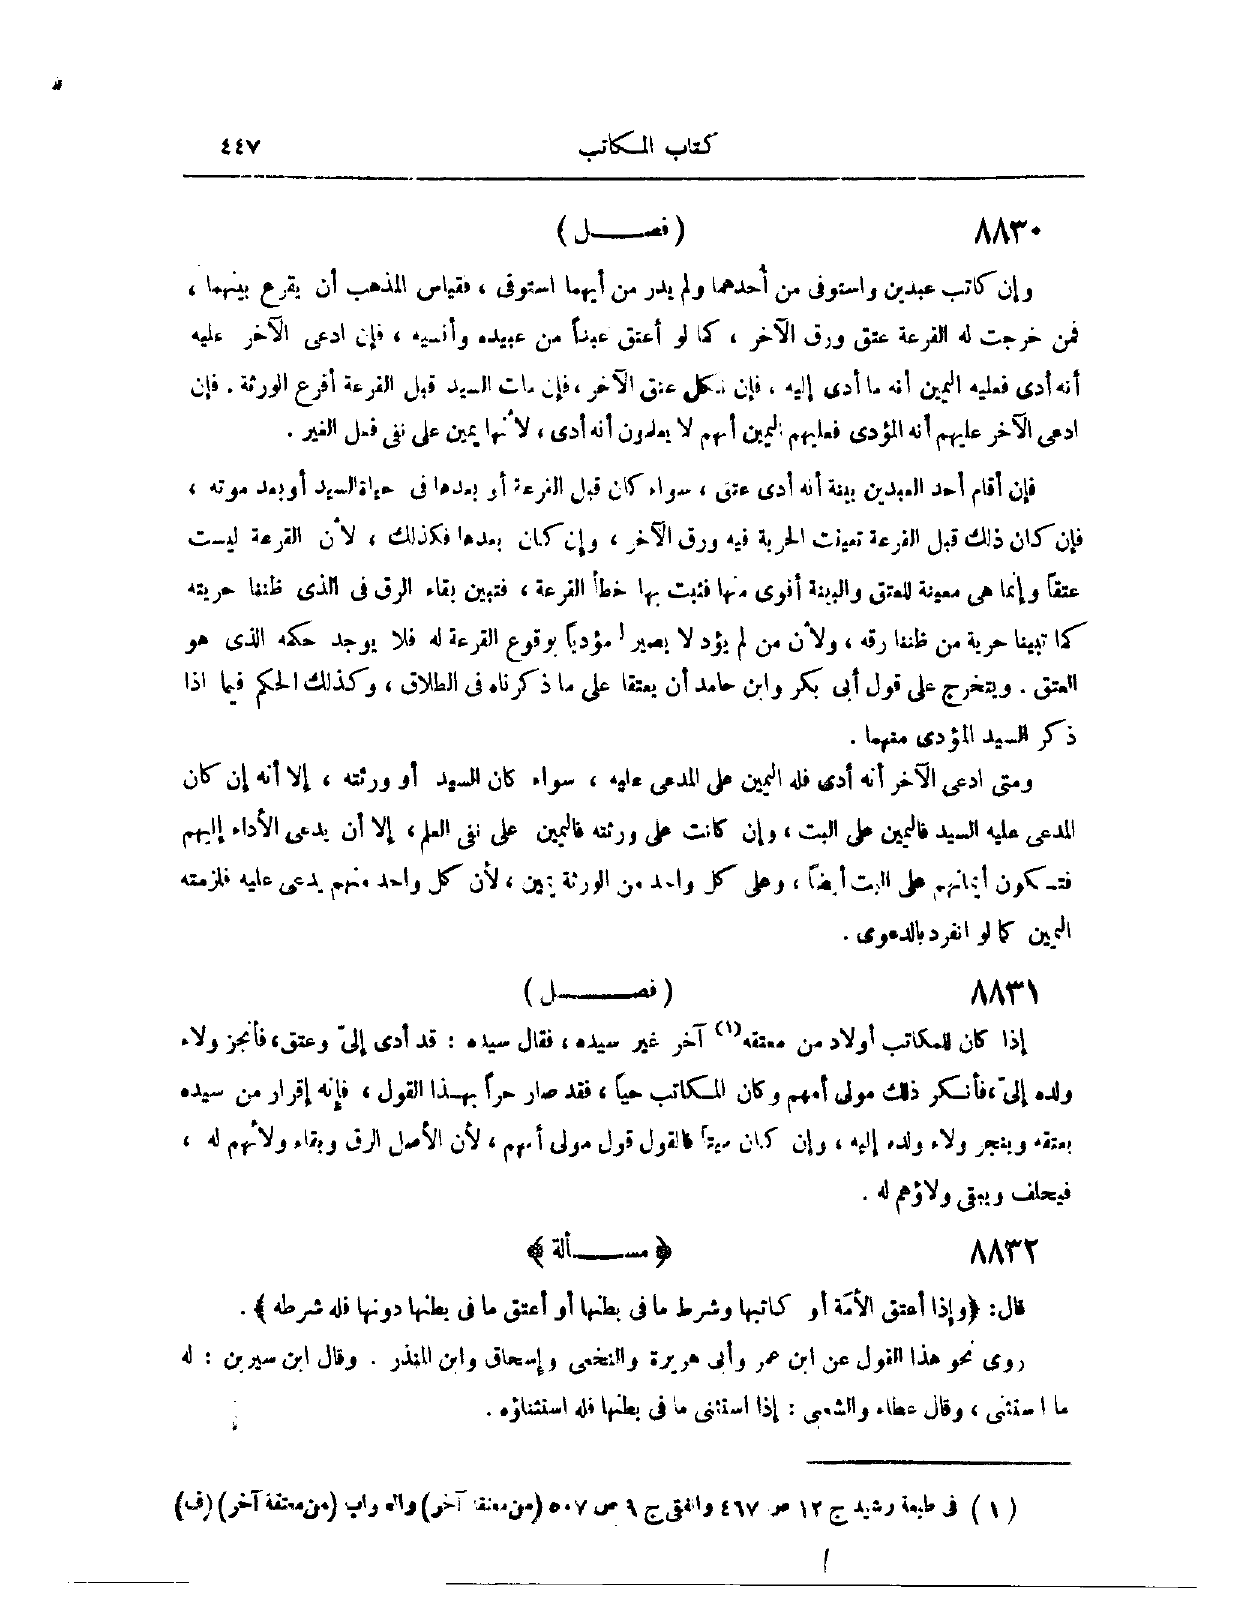 كتاب المكاتب ٤٤٧
٨٨٣٠ ( فصـــــل )
وإن كاتب عبدين واستوفى من أحدهما ولم يدر من أيهما استوفى ، فقياس المذهب أن يقرع بينهما ،
فمن خرجت له القرعة عتق ورق الآخر ، كما لو أعتق عبداً من عبيده وأنسيه ، فإن ادعى الآخر عليه
أنه أدى فعليه اليمين أنه ما أدى إليه ، فإن نكل عتق الآخر ، فإن مات السيد قبل القرعة أقرع الورثة . فإن
ادعى الآخر عليهم أنه المؤدى فعليهم اليمين أنهم لا يعلمون أنه أدى ، لأنها يمين على نفى فعل الغير .
فإن أقام أحد العبدين بينة أنه أدى عتق ، سواء كان قبل القرعة أو بعدها فى حياة السيد أو بعد موته ،
فإن كان ذلك قبل القرعة تعينت الحرية فيه ورق الآخر ، وإن كان بعدها فكذلك ، لأن القرعة ليست
عتقاً وإنما هى معينة للعتق والبينة أقوى منها فثبت بها خطأ القرعة ، فتبين بقاء الرق فى الذى ظننا حريته
كما تبينا حرية من ظننا رقه ، ولأن من لم يؤد لا يصير مؤدياً بوقوع القرعة له فلا يوجد حكمه الذى هو
العتق . ويتخرج على قول أبى بكر وابن حامد أن يعتقا على ما ذكرناه فى الطلاق ، وكذلك الحكم فيما اذا
ذكر السيد المؤدى منهما .
ومتى ادعى الآخر أنه أدى فله اليمين على المدعى عليه ، سواء كان السيد أو ورثته ، إلا أنه إن كان
المدعى عليه السيد فاليمين على البت ، وإن كانت على ورثته فاليمين على نفى العلم ، إلا أن يدعى الأداء إليهم
فتكون أيمانهم على البت أيضاً ، وعلى كل واحد من الورثة يمين ، لأن كل واحد منهم يدعى عليه فلزمته
اليمين كما لو انفرد بالدعوى .
٨٨٣١ ( فصـــــل )
إذا كان للمكاتب أولاد من معتقه (١) آخر غير سيده ، فقال سيده : قد أدى إلىّ وعتق ، فأنجز ولاء
ولده إلىّ ، فأنكر ذلك مولى أمهم وكان المكاتب حياً ، فقد صار حراً بهذا القول ، فإنه إقرار من سيده
بعتقه وينجر ولاء ولده إليه ، وإن كان ميتاً فالقول قول مولى أمهم ، لأن الأصل الرق وبقاء ولائهم له ،
فيحلف ويبقى ولاؤهم له .
٨٨٣٢ ﴿ مســـــألة ﴾
قال : ﴿ وإذا أعتق الأمة أو كاتبها وشرط ما فى بطنها أو أعتق ما فى بطنها دونها فله شرطه ﴾ .
روى نحو هذا القول عن ابن عمر وأبى هريرة والنخعى وإسحاق وابن المنذر . وقال ابن سيرين : له
ما استثنى ، وقال عطاء والشعبى : إذا استثنى ما فى بطنها فله استثناؤه .
( ١ ) فى طبعة رشيد ج ١٢ ص ٤٦٧ والفقى ج ٩ ص ٥٠٧ (من معتقه آخر) والصواب (من معتقة آخر) (ف)